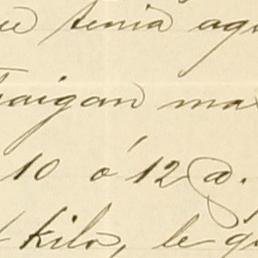 ue tenia agu
raigan ma
10 ó 12 @.
kilo, le q